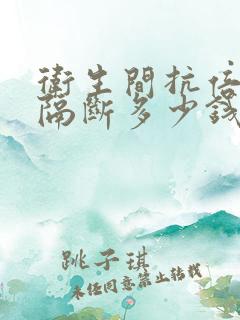 衛生間抗倍
隔斷多少錢
跳子琪
未任同意禁止转载